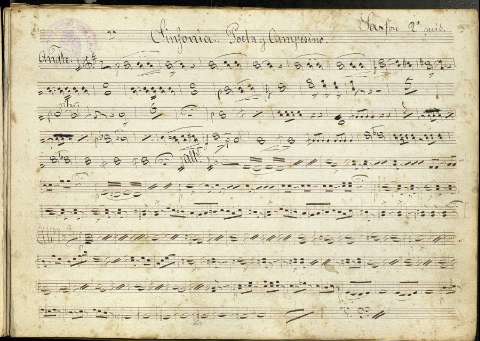 Sinfonia. Poeta y Campesino.
Saxfon 2º
Andte.
Allº